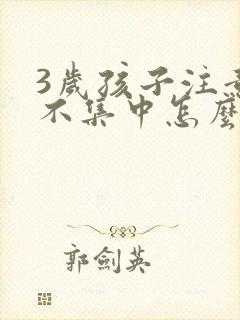 3歲孩子注
不集中怎麼
郭劍英